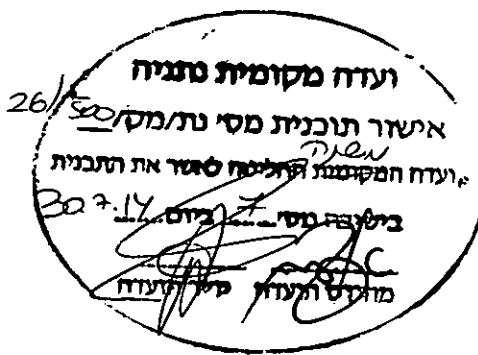 ועדה מקומית נתניה
אישור תוכנית מס' נת/מק/500/26
משנה
ועדה המקומית החליטה לאשר את התכנית
בישיבה מס' 7 ביום 30.7.14
מהנדס הועדה